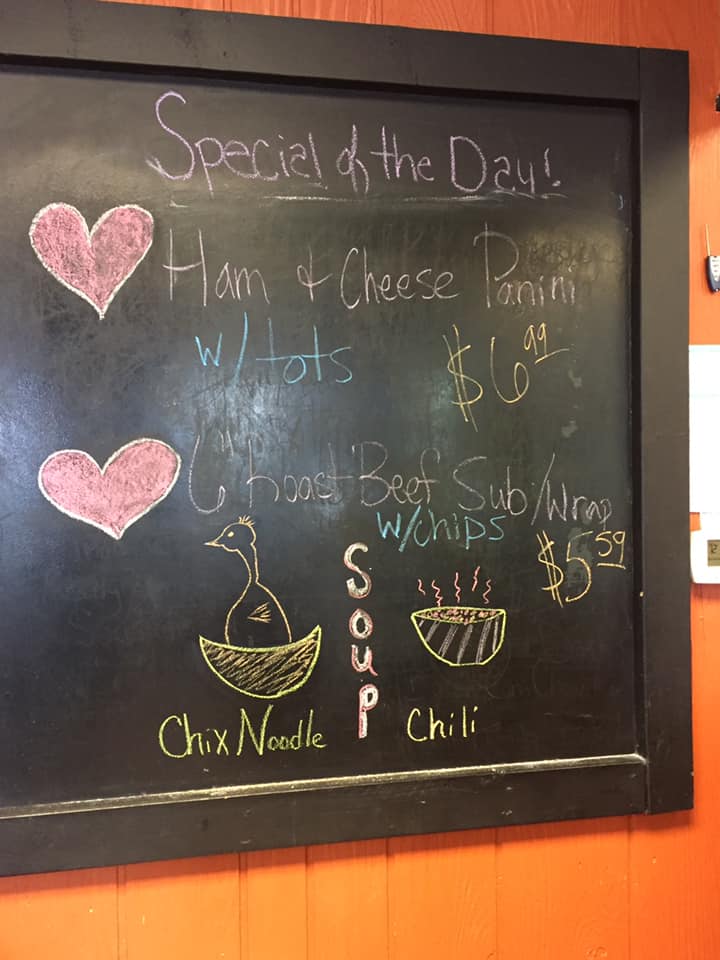 Special of the Day!
Ham & Cheese Panini
w/tots $6.99
6" Roast Beef Sub/Wrap
w/chips
$5.59
Soup
Chix Noodle
Chili